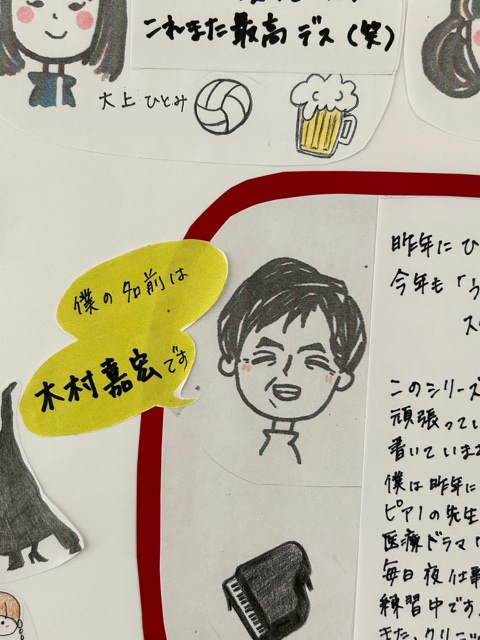 これまた最高デス(笑)
大上ひとみ
僕の名前は
木村嘉宏です
昨年に ひ
今年も「う
ス
このシリーズ
頑張ってい
書いていま
僕は昨年に
ピアノの先生
医療ドラマ
毎日夜仕事
練習中です
また、クリニッ